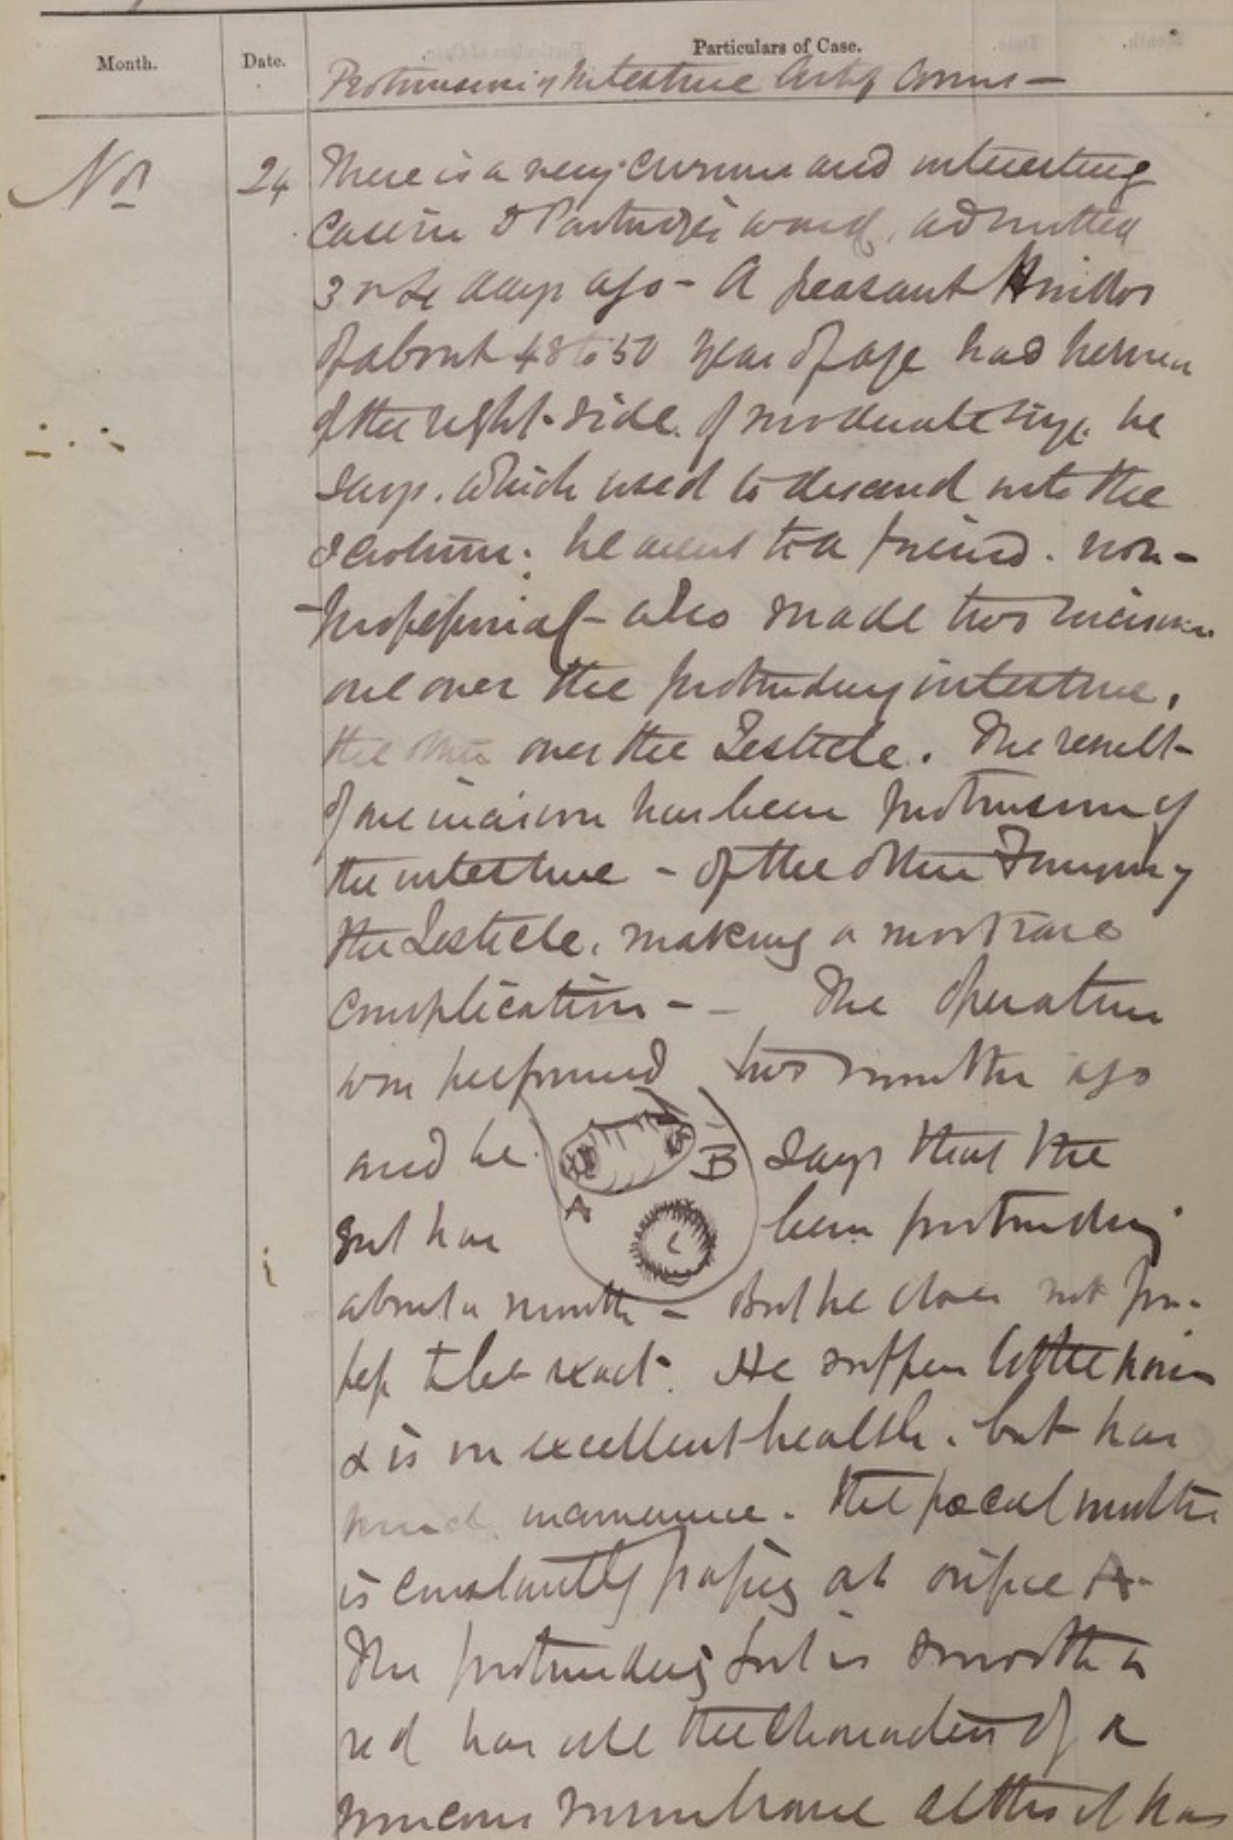 Particulars of Case.
Month.
Date.
Protrusion of Intestine Artif Anus –
Nov
24
There is a very curious and interesting
case in Dr Partridge's ward, admitted
3 or 4 days ago – A peasant Hindoo
of about 48 to 50 year of age had hernia
of the right side of moderate size, he
says, which used to descend into the
Scrotum. he went to a friend. non-
-professional – who made two incisions
one over the protruding intestine,
the other over the Testicle. The result
of one incision has been protrusion of
the intestine – of the other Fungus of
the Testicle, making a most rare
complication – – The operation
was performed two months ago
and he says that the
A
B
C
gut has been protruding
about a month – But he does not pro-
fess to be exact. He suffers little pain
& is in excellent health, but has
much inconvenience. The fœcal matter
is constantly passing at orifice A –
The protruding gut is smooth &
red has all the characters of a
mucous membrane altho it has